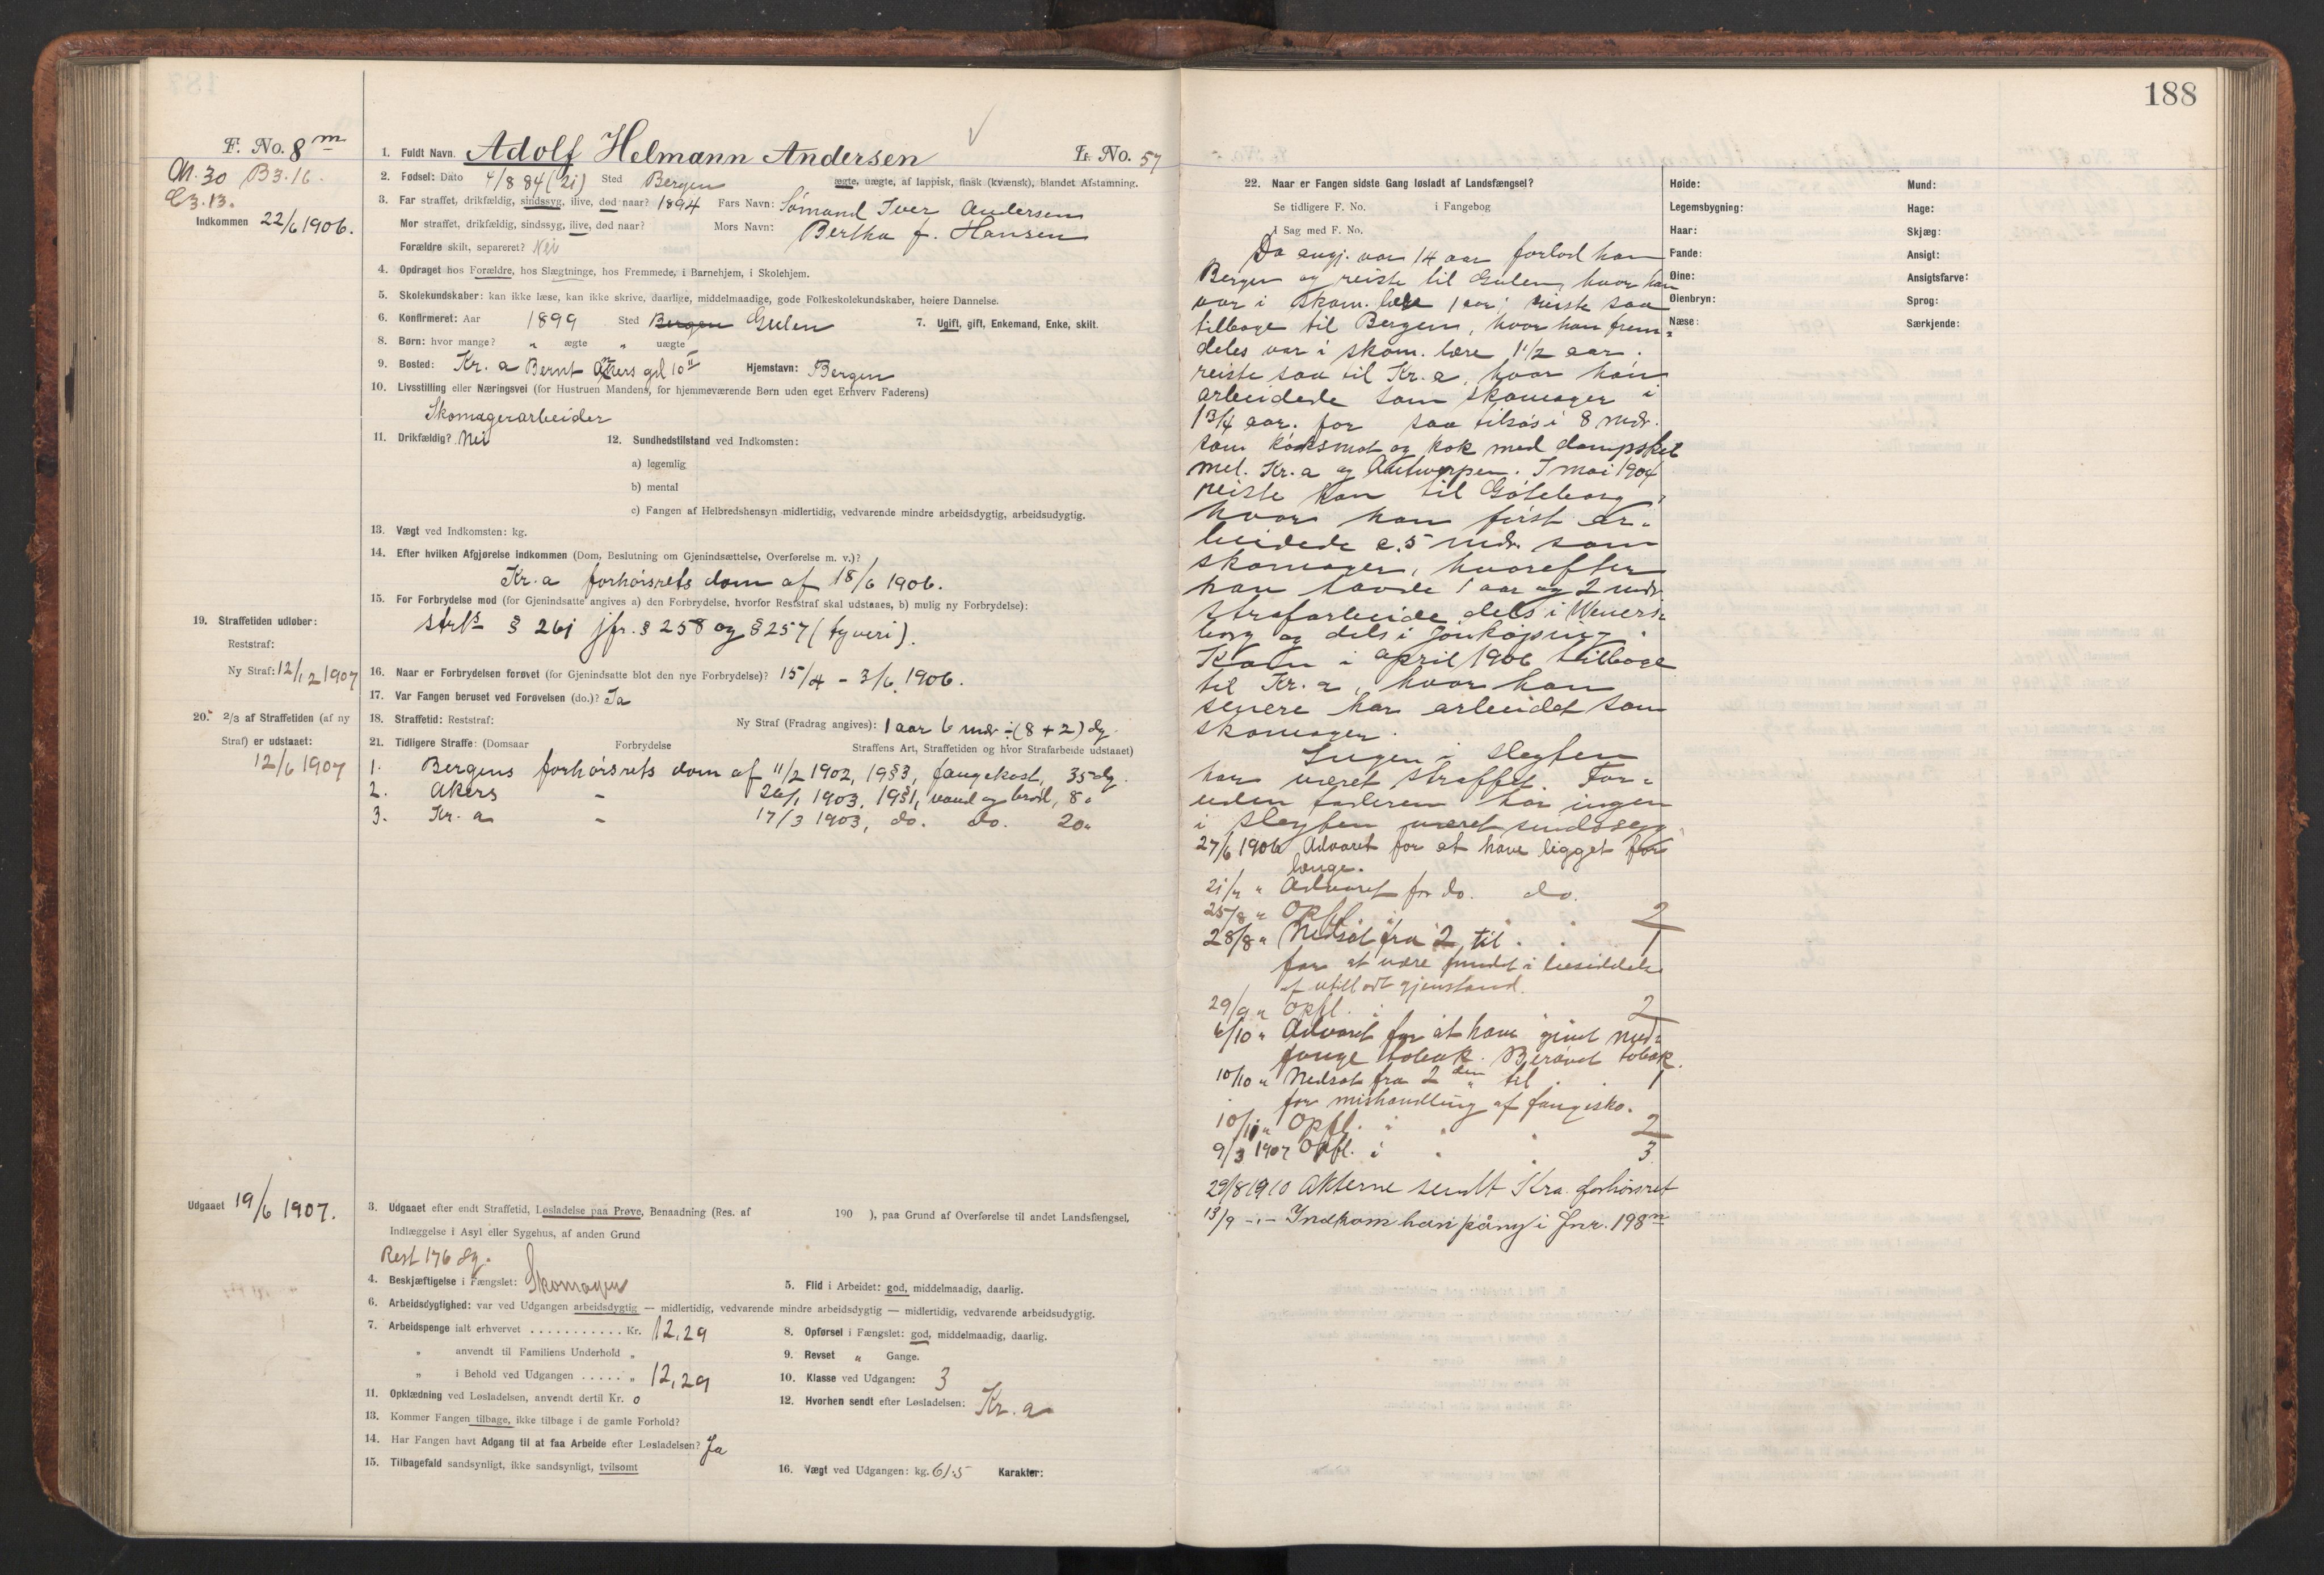 188
F. No. 8 m
A1. 30 B3. 16.
C3. 13.
Indkommen 22/6 1906.
1. Fuldt Navn. Adolf Helmann Andersen L. No. 57
2. Fødsel: Dato 4/8 84 (21) Sted Bergen ægte, uægte, af lappisk, finsk (kvænsk), blandet Afstamning.
3. Far straffet, drikfældig, sindssyg, ilive, død naar? 1894 Fars Navn: Sømand Iver Andersen
Mor straffet, drikfældig, sindssyg, ilive, død naar? Mors Navn: Bertha f. Hansen
Forældre skilt, separeret? Nei
4. Opdraget hos Forældre, hos Slægtninge, hos Fremmede, i Barnehjem, i Skolehjem.
5. Skolekundskaber: kan ikke læse, kan ikke skrive, daarlige, middelmaadige, gode Folkeskolekundskaber, høiere Dannelse.
6. Konfirmeret: Aar 1899 Sted Bergen Gulen 7. Ugift, gift, Enkemand, Enke, skilt.
8. Børn: hvor mange? " ægte " uægte
9. Bosted: Kr. a Bernt Ankers gd 10 II Hjemstavn: Bergen
10. Livsstilling eller Næringsvei (for Hustruen Mandens, for hjemmeværende Børn uden eget Erhverv Faderens)
Skomagerarbeider
11. Drikfældig? Nei 12. Sundhedstilstand ved Indkomsten:
a) legemlig
b) mental
c) Fangen af Helbredshensyn midlertidig, vedvarende mindre arbeidsdygtig, arbeidsudygtig.
13. Vægt ved Indkomsten: kg.
14. Efter hvilken Afgjørelse indkommen (Dom, Beslutning om Gjenindsættelse, Overførelse m. v.)?
Kr. a forhørsrets dom af 18/6 1906.
15. For Forbrydelse mod (for Gjenindsatte angives a) den Forbrydelse, hvorfor Reststraf skal udstaaes, b) mulig ny Forbrydelse):
§ 261 jfr. § 258 og § 257 (tyveri).
19. Straffetiden udløber:
Reststraf:
Ny Straf: 12/12 1907
16. Naar er Forbrydelsen forøvet (for Gjenindsatte blot den nye Forbrydelse)? 15/4 - 3/6 1906.
17. Var Fangen beruset ved Forøvelsen (do.)? Ja
20. 2/3 af Straffetiden (af ny
Straf) er udstaaet:
12/6 1907
18. Straffetid: Reststraf: Ny Straf (Fradrag angives): 1 aar 6 mdr ÷ (8 + 2) dg.
21. Tidligere Straffe: (Domsaar Forbrydelse Straffens Art, Straffetiden og hvor Strafarbeide udstaaet)
1. Bergens forhørsrets dom af 11/2 1902, 19§3, fangekost, 35 dg.
2. Akers - 26/1 1903, 19§1, vand og brød, 8 "
3. Kr. a - 17/3 1903, do. do. 20 "
Udgaaet 19/6 1907.
3. Udgaaet efter endt Straffetid, Løsladelse paa Prøve, Benaadning (Res. af 190 ), paa Grund af Overførelse til andet Landsfængsel,
Indlæggelse i Asyl eller Sygehus, af anden Grund
Rest 176 dg.
4. Beskjæftigelse i Fængslet: Skomager 5. Flid i Arbeidet: god, middelmaadig, daarlig.
6. Arbeidsdygtighed: var ved Udgangen arbeidsdygtig — midlertidig, vedvarende mindre arbeidsdygtig — midlertidig, vedvarende arbeidsudygtig.
7. Arbeidspenge ialt erhvervet . . . . . . . . . . . Kr. 12,29 8. Opførsel i Fængslet: god, middelmaadig, daarlig.
" anvendt til Familiens Underhold " 9. Revset " Gange.
" i Behold ved Udgangen . . . . . " 12,29 10. Klasse ved Udgangen: 3
11. Opklædning ved Løsladelsen, anvendt dertil Kr. 0 12. Hvorhen sendt efter Løsladelsen: Kr. a
13. Kommer Fangen tilbage, ikke tilbage i de gamle Forhold?
14. Har Fangen havt Adgang til at faa Arbeide efter Løsladelsen? Ja
15. Tilbagefald sandsynligt, ikke sandsynligt, tvilsomt 16. Vægt ved Udgangen: kg. 61.5 Karakter:
22. Naar er Fangen sidste Gang løsladt af Landsfængsel?
Se tidligere F. No. i Fangebog
I Sag med F. No.
Høide: Mund:
Legemsbygning: Hage:
Haar: Skjæg:
Pande: Ansigt:
Øine: Ansigtsfarve:
Øienbryn: Sprog:
Næse: Særkjende:
Da angj. var 14 aar forlod han
Bergen og reiste til Gulen, hvor han
var i skom. lære 1 aar; reiste saa
tilbage til Bergen, hvor han frem-
deles var i skom. lære 1 1/2 aar.
reiste saa til Kr. a, hvor han
arbeidede som skomager i
1 3/4 aar. for saa tilsøs i 8 mdr.
som koksmat og kok med dampskib
mel. Kr. a og Antwerpen. I mai 1904
reiste han til Gøteborg,
hvor han først ar-
beidede c. 5 mdr. som
skomager, hvorefter
han havde 1 aar og 2 mdr
strafarbeide dels i Weners-
borg og dels i Jønkøping.
Kom i april 1906 tilbage
til Kr. a, hvor han
senere har arbeidet som
skomager.
Ingen i slegten
har været straffet. For-
uden faderen har ingen
i slegten været sindssyg.
27/6 1906 Advaret for at have ligget for
længe.
21/7 " Advaret for do. do.
25/8 " Opfl. i " " 2
28/8 " Nedsat fra 2 til . . 1
for at være fundet i besiddelse
af utilladt gjenstand.
29/9 " Opfl. i " 2
6/10 " Advaret for at have givet med-
fange tobak. Berøvet tobak.
10/10 " Nedsat fra 2 den til . . 1
for mishandling af fangesko.
10/11 " Opfl. i " 2
9/3 1907 Opfl. i " " 3
29/8 1910 Akterne sendt Kra. forhørsret
13/9 -"- Indkom han påny i Fnr. 198 m